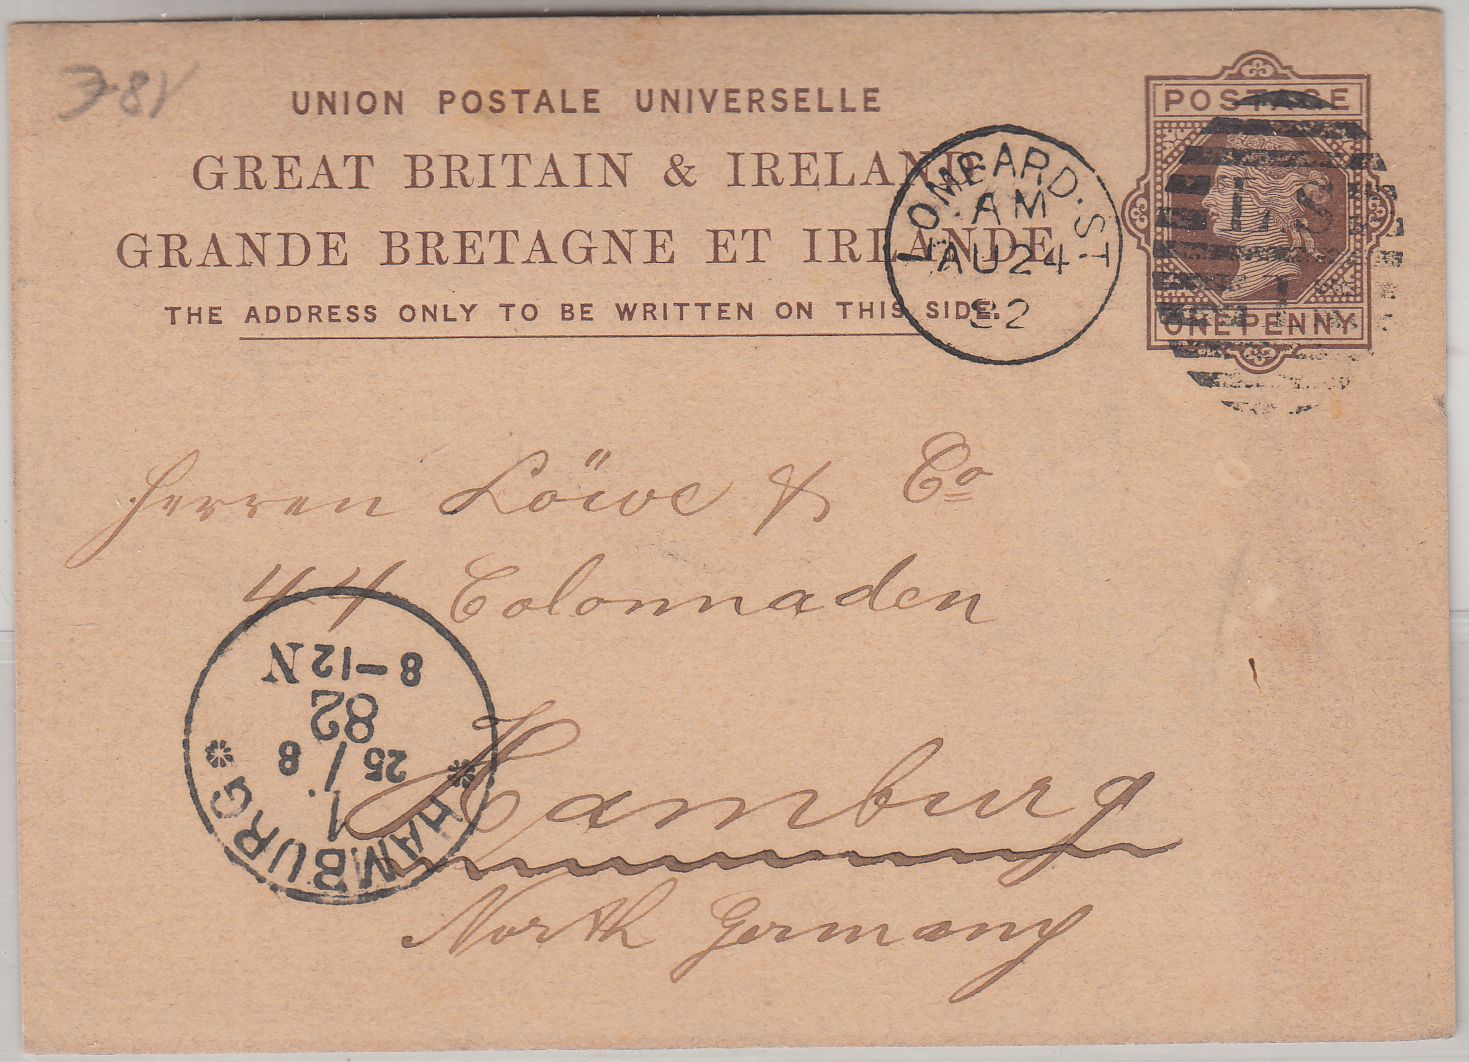 UNION POSTALE UNIVERSELLE
GREAT BRITAIN & IRELAND
GRANDE BRETAGNE ET IRLANDE
THE ADDRESS ONLY TO BE WRITTEN ON THIS SIDE.
POSTAGE
ONE PENNY
LOMBARD·ST
AM
AU 24
82
L S
1
Herren Löwe & Co
44 Colonnaden
Hamburg
North Germany
HAMBURG
1.
25/8
82
8-12N